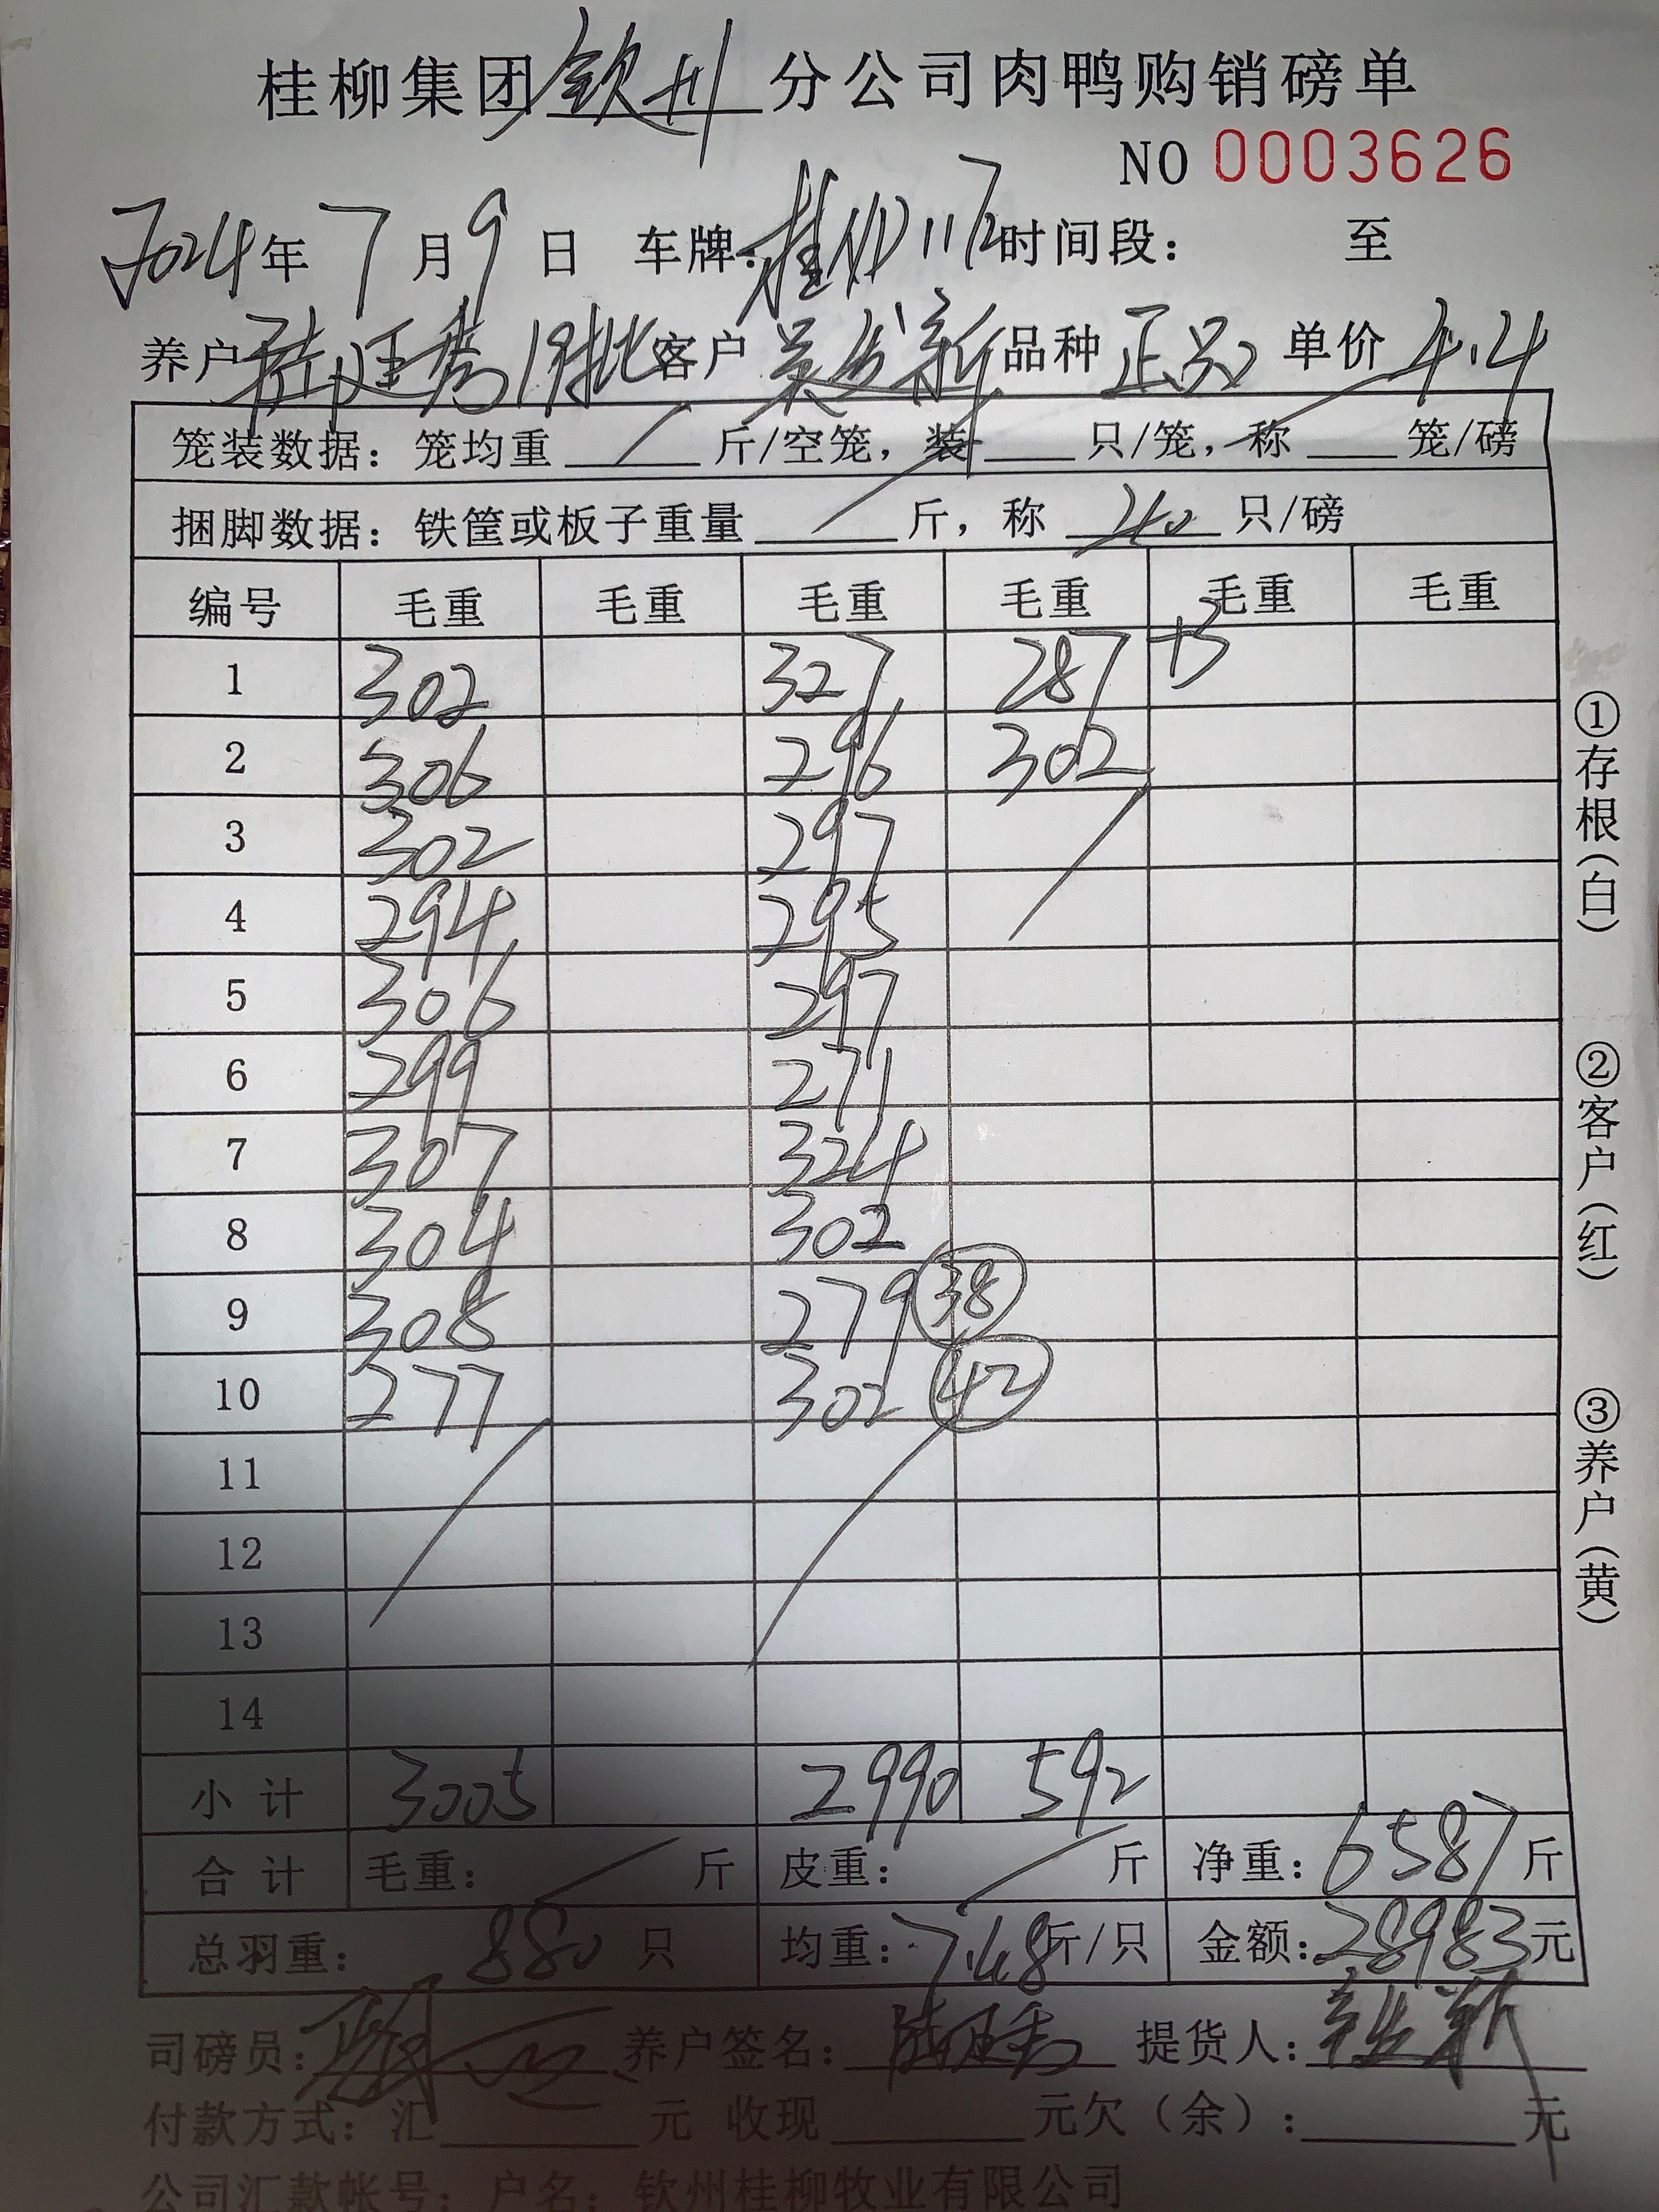 桂柳集团钦州分公司肉鸭购销磅单
NO 0003626
2024年7月9日 车牌：桂 时间段： 至
养户 19批 客户 吴 新 品种 正只 单价 4.4
笼装数据：笼均重 / 斤/空笼，装 / 只/笼，称 / 笼/磅
捆脚数据：铁筐或板子重量 / 斤，称 40 只/磅
编号 毛重 毛重 毛重 毛重 毛重 毛重
1 302 327 287 +3
2 306 296 302
3 302 297
4 294 295
5 306 297
6 299 271
7 307 324
8 304 302
9 308 279 38
10 277 302 42
11
12
13
14
小计 3005 2990 592
合计 毛重： / 斤 皮重： / 斤 净重：6587斤
总羽重： 880 只 均重：7.48斤/只 金额：28983元
司磅员： 养户签名： 提货人：
付款方式：汇 元 收现 元欠（余）： 元
公司汇款帐号：户名：钦州桂柳牧业有限公司
①存根（白）
②客户（红）
③养户（黄）